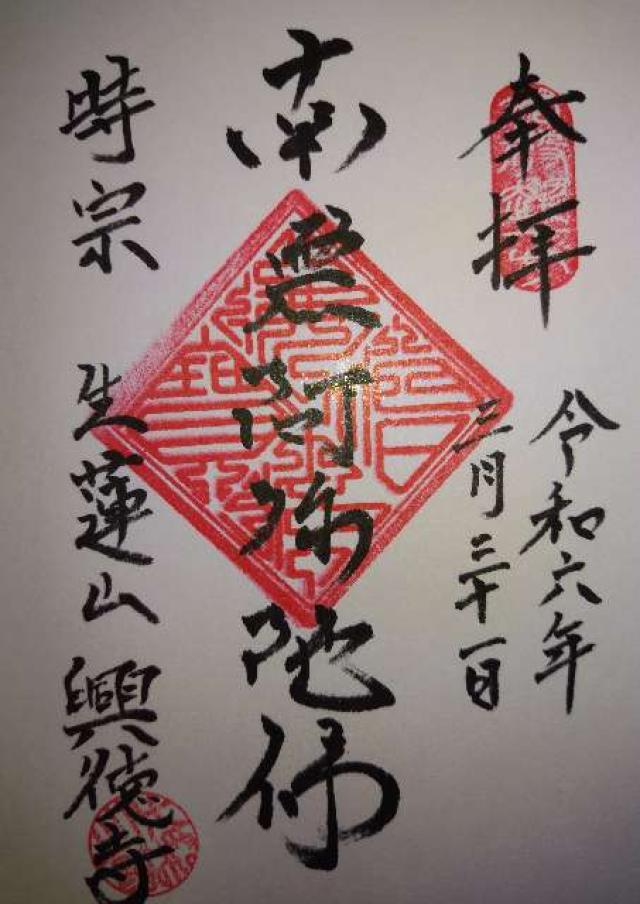 奉拝
令和六年
三月三十一日
南無阿弥陀佛
時宗 生蓮山 興徳寺